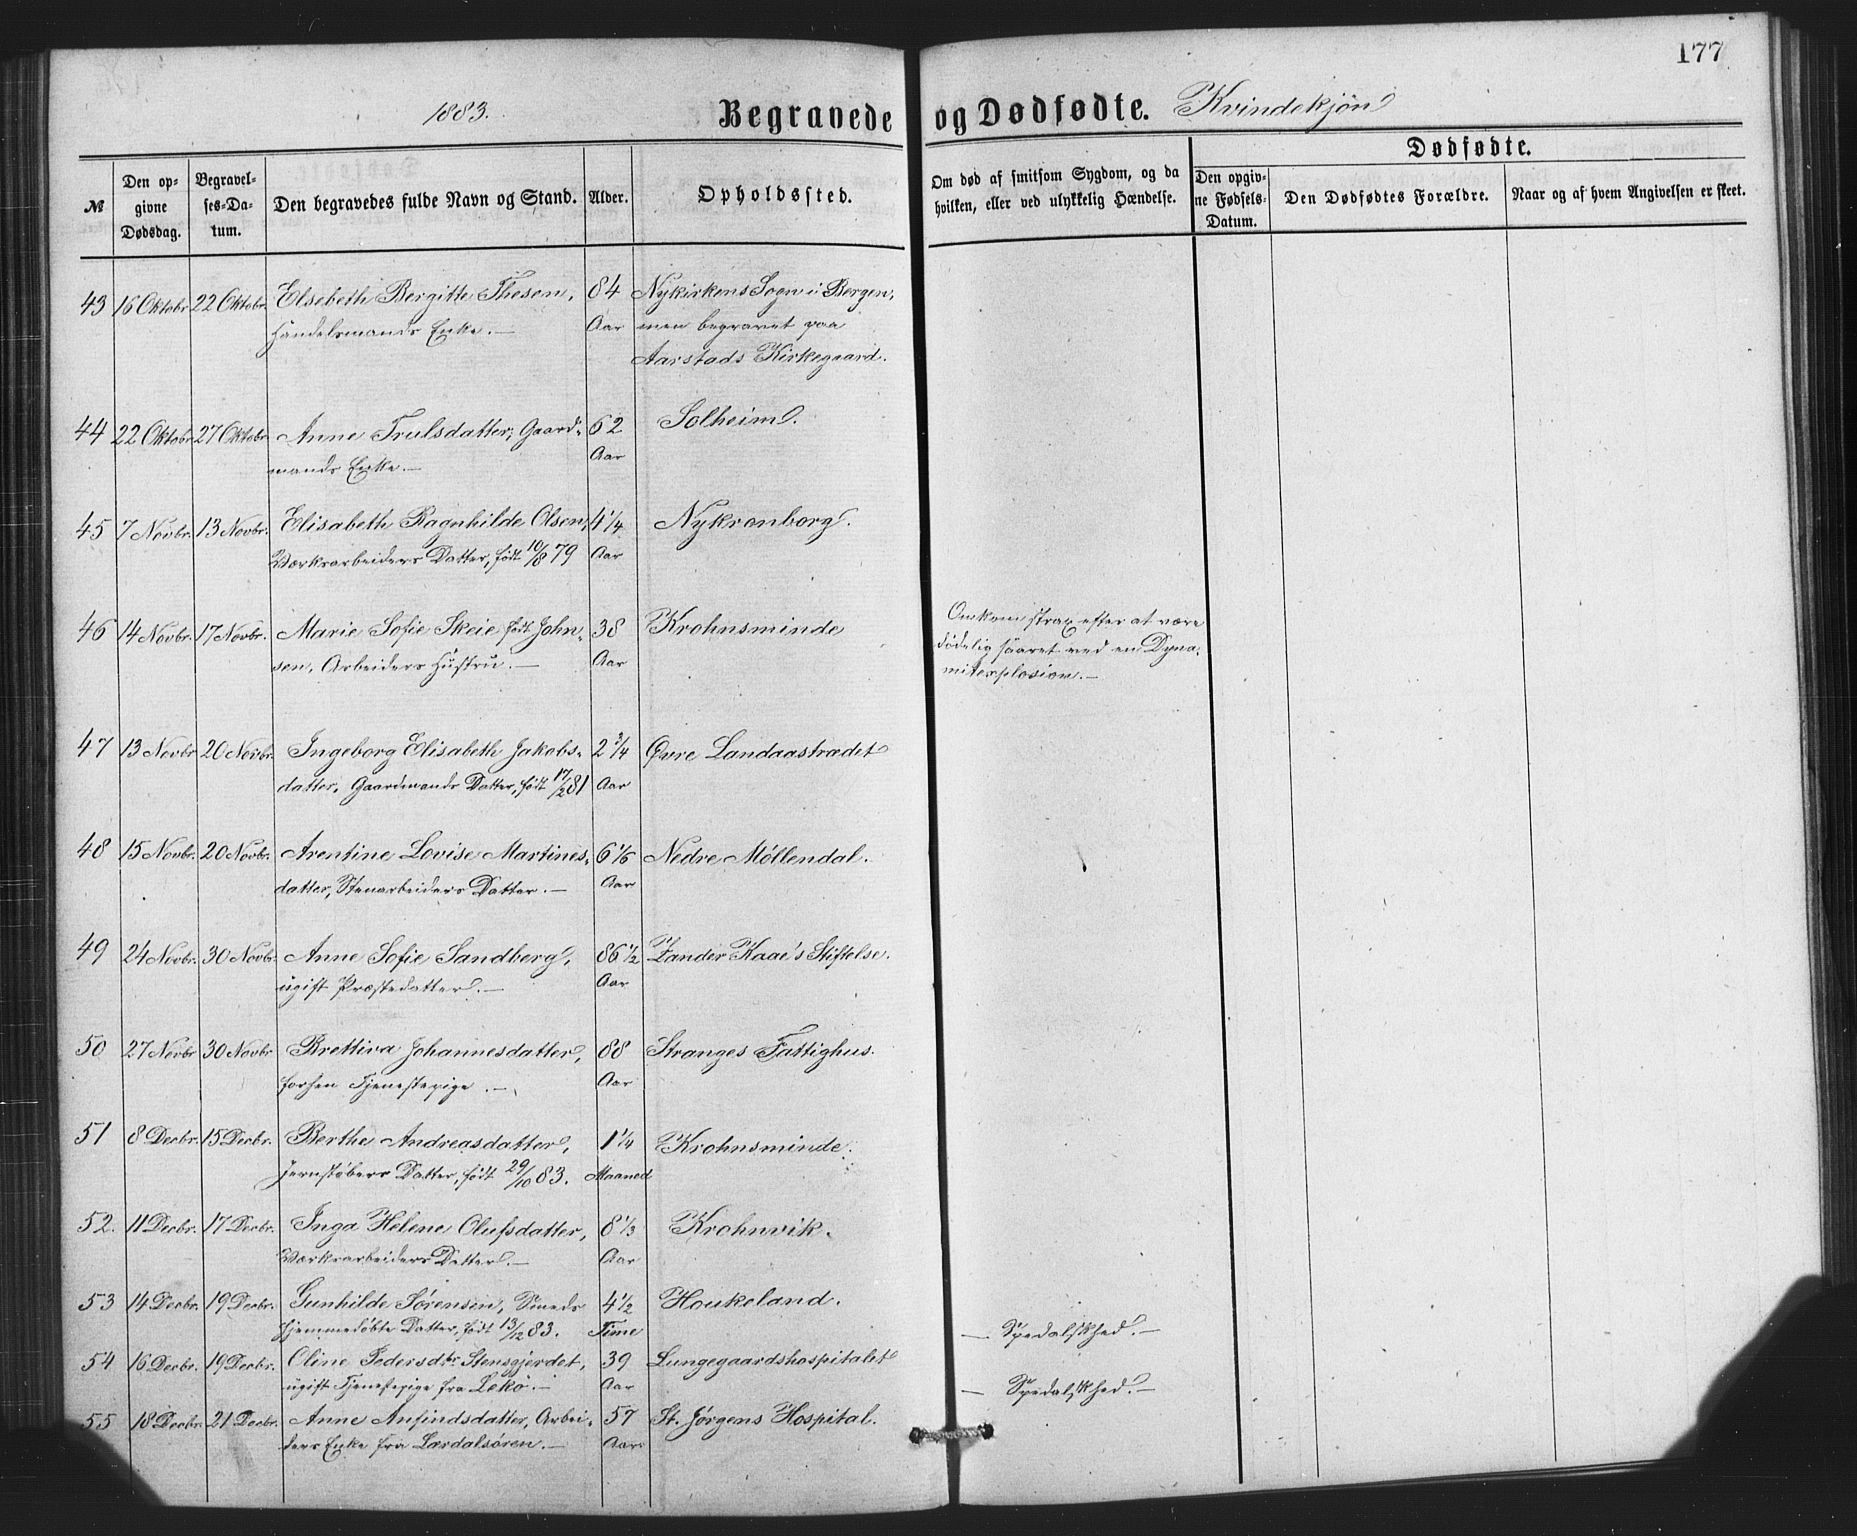 177
1883.
Begravede og Dødfødte. Kvindekjøn
№
Den opgivne Dødsdag.
Begravelses-Datum.
Den begravedes fulde Navn og Stand.
Alder.
Opholdssted.
Om død af smitsom Sygdom, og da hvilken, eller ved ulykkelig Hændelse.
Dødfødte.
Den opgivne Fødsels-Datum.
Den Dødfødtes Forældre.
Naar og af hvem Angivelsen er skeet.
43 16 Oktobr 22 Oktobr. Elsebeth Bergitte Thesen, 84 Nykirkens Sogn i Bergen,
Handelsmands Enke.— Aar men begravet paa
Aarstads Kirkegaard.
44 22 Oktobr 27 Oktobr. Anne Trulsdatter, Gaard- 62 Solheim.
mands Enke.— Aar
45 7 Novbr. 13 Novbr. Elisabeth Ragnhilde Olsen, 4 1/4 Nykronborg.
Værksarbeiders Datter, født 10/8 79 Aar
46 14 Novbr. 17 Novbr. Marie Sofie Skeie født John- 38 Krohnsminde Omkom strax efter at være
sen, Arbeiders Hustru.— Aar dødelig saaret ved en Dyna-
mitexplosion.—
47 13 Novbr 20 Novbr. Ingeborg Elisabeth Jakobs- 2 3/4 Øvre Landaastrædet
datter, Gaardmands Datter, født 17/2 81 Aar
48 15 Novbr. 20 Novbr. Arentine Lovise Martines- 6 1/6 Nedre Møllendal.
datter, Stenarbeiders Datter.— Aar
49 24 Novbr. 30 Novbr. Anne Sofie Sandberg, 86 1/2 Zander Kaae's Stiftelse.
ugift Præstedatter.— Aar
50 27 Novbr 30 Novbr Brettiva Johannesdatter, 88 Stranges Fattighus.
forhen Tjenestepige.— Aar
51 8 Decbr. 15 Decbr. Berthe Andreasdatter, 1 1/4 Krohnsminde.
Jernstøbers Datter, født 29/10 83. Maaned
52. 11 Decbr. 17 Decbr. Inga Helene Olufsdatter, 8 1/3 Krohnvik.
Værksarbeiders Datter.— Aar
53 14 Decbr. 19 Decbr. Gunhilde Sørensen, Smeds 4 1/2 Houkeland.
hjemmedøbte Datter, født 13/12 83. Time — Spedalskhed.—
54 16 Decbr. 19 Decbr. Oline Pedersdtr. Stensgjerdet, 39 Lungegaardshospitalet
ugift Tjenestepige fra Lekø.— Aar — Spedalskhed.—
55 18 Decbr. 21 Decbr. Anne Anfindsdatter, Arbei- 57 St. Jørgens Hospital.
ders Enke fra Lærdalsøren.— Aar